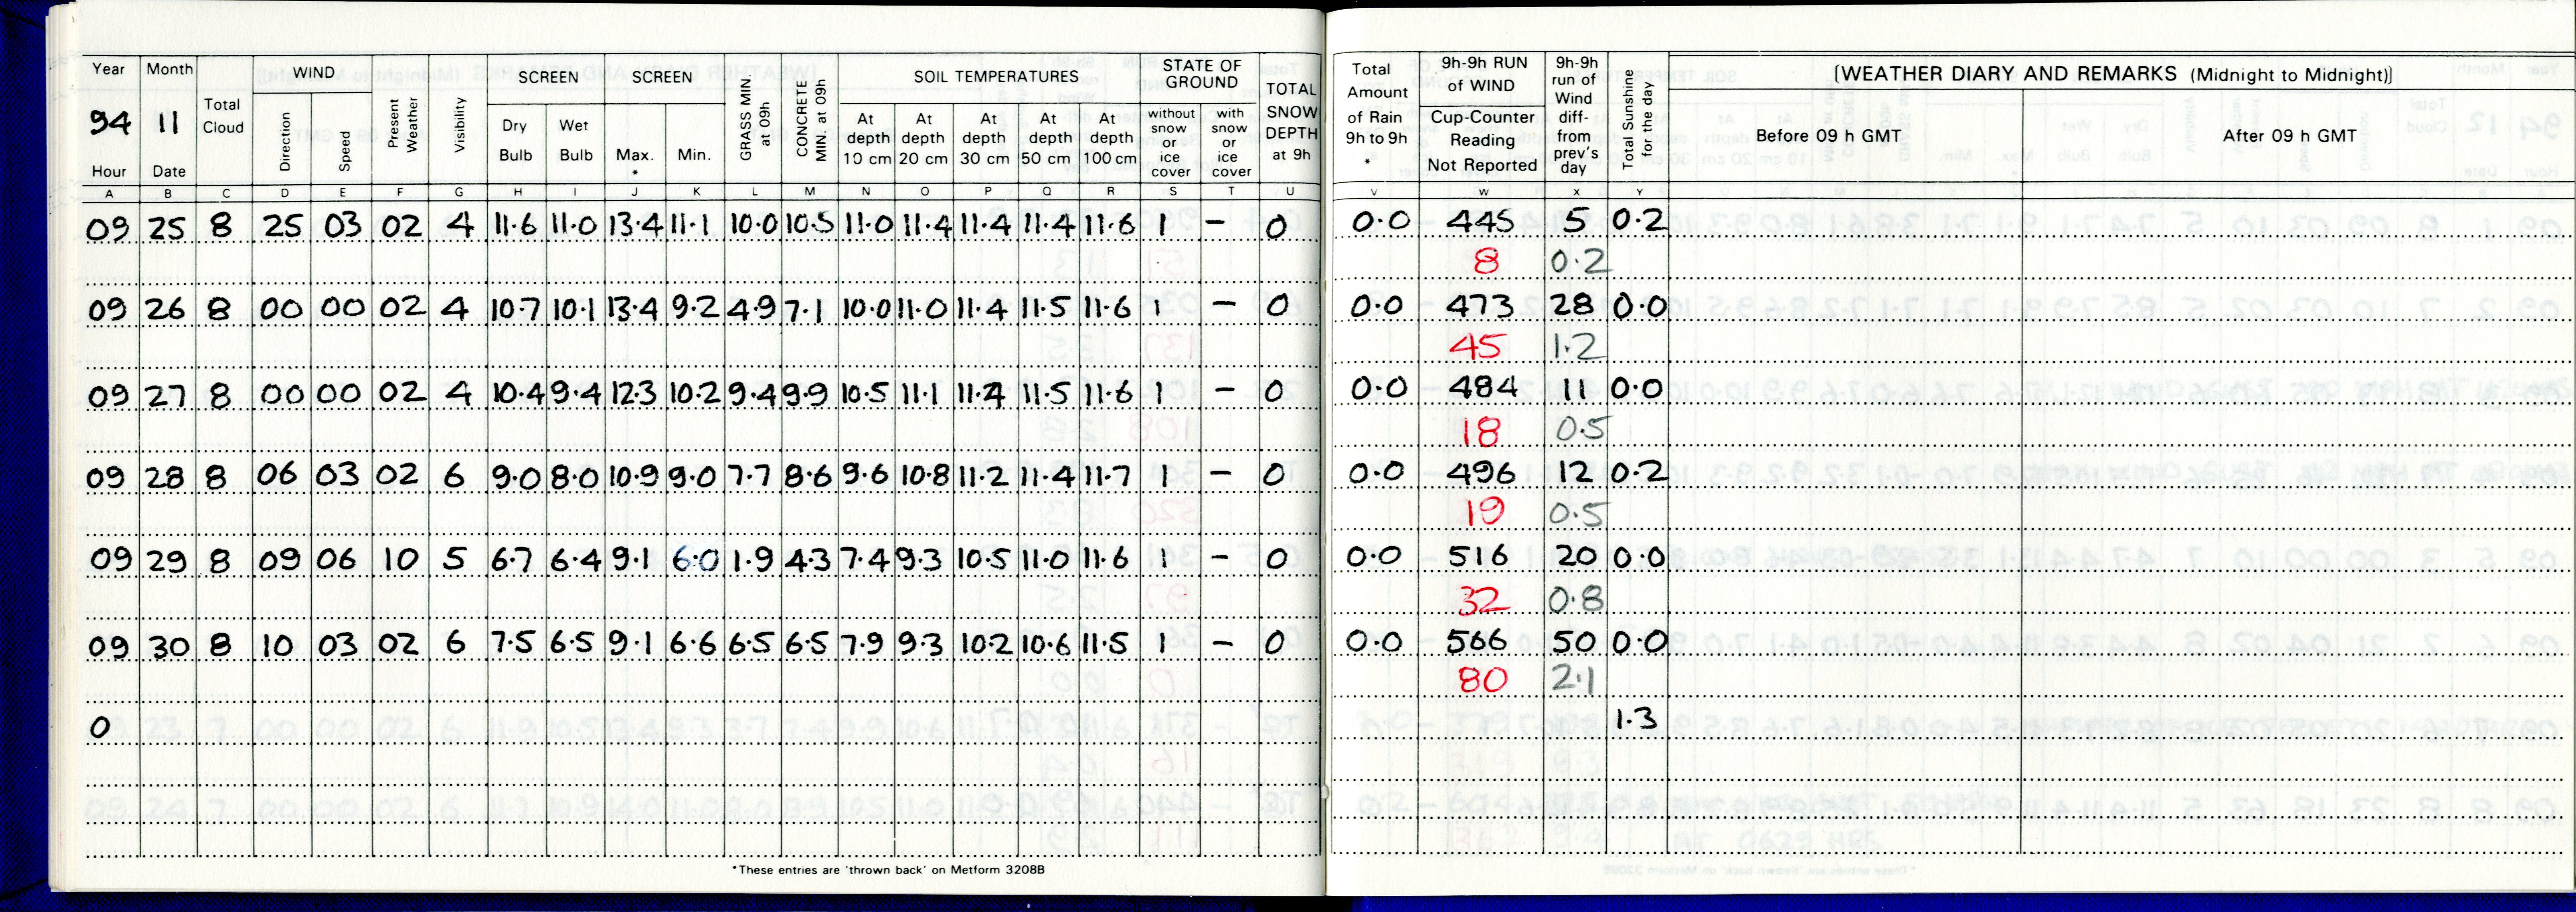 Year Month Total Cloud WIND Present Weather Visibility SCREEN SCREEN GRASS MIN at 09h CONCRETE MIN at 09h SOIL TEMPERATURES STATE OF GROUND TOTAL SNOW DEPTH at 9h Total Amount of Rain 9h to 9h * 9h-9h RUN of WIND 9h-9h run of Wind diff- from prev's day Total Sunshine for the day [WEATHER DIARY AND REMARKS (Midnight to Midnight)]
94 11 Direction Speed Dry Bulb Wet Bulb Max. * Min. At depth 10 cm At depth 20 cm At depth 30 cm At depth 50 cm At depth 100 cm without snow or ice cover with snow or ice cover Cup-Counter Reading Not Reported Before 09 h GMT After 09 h GMT
Hour Date
A B C D E F G H I J K L M N O P Q R S T U V W X Y
09 25 8 25 03 02 4 11.6 11.0 13.4 11.1 10.0 10.5 11.0 11.4 11.4 11.4 11.6 1 – 0 0.0 445 5 0.2
8 0.2
09 26 8 00 00 02 4 10.7 10.1 13.4 9.2 4.9 7.1 10.0 11.0 11.4 11.5 11.6 1 – 0 0.0 473 28 0.0
45 1.2
09 27 8 00 00 02 4 10.4 9.4 12.3 10.2 9.4 9.9 10.5 11.1 11.4 11.5 11.6 1 – 0 0.0 484 11 0.0
18 0.5
09 28 8 06 03 02 6 9.0 8.0 10.9 9.0 7.7 8.6 9.6 10.8 11.2 11.4 11.7 1 – 0 0.0 496 12 0.2
19 0.5
09 29 8 09 06 10 5 6.7 6.4 9.1 6.0 1.9 4.3 7.4 9.3 10.5 11.0 11.6 1 – 0 0.0 516 20 0.0
32 0.8
09 30 8 10 03 02 6 7.5 6.5 9.1 6.6 6.5 6.5 7.9 9.3 10.2 10.6 11.5 1 – 0 0.0 566 50 0.0
80 2.1
0 1.3
*These entries are 'thrown back' on Metform 3208B